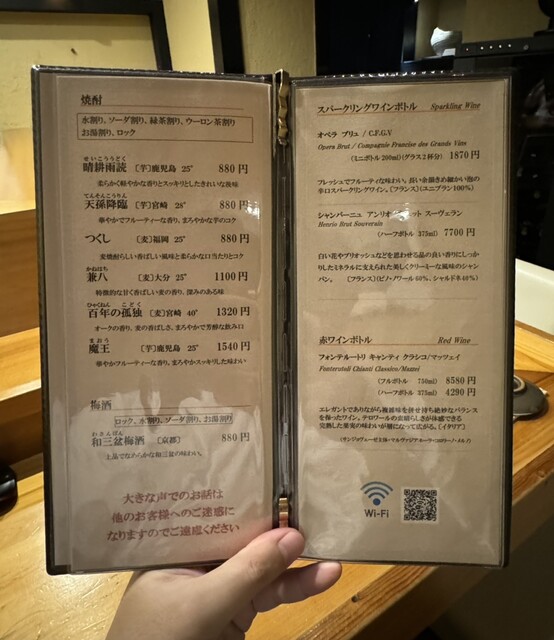 焼酎
水割り、ソーダ割り、緑茶割り、ウーロン茶割り
お湯割り、ロック
せいこううどく
晴耕雨読 〔芋〕鹿児島 25° 880円
柔らかく軽やかな香りとスッキリとしたきれいな後味
てんそんこうりん
天孫降臨 〔芋〕宮崎 28° 880円
華やかでフルーティーな香り、まろやかな芋のコク
つくし 〔麦〕福岡 25° 880円
麦焼酎らしい香ばしい風味と柔らかな口当たりとコク
かねはち
兼八 〔麦〕大分 25° 1100円
特徴的な甘く香ばしい麦の香り、深みのある味
ひゃくねん こどく
百年の孤独 〔麦〕宮崎 40° 1320円
オークの香り、麦の香ばしさ、まろやかで芳醇な飲み口
まおう
魔王 〔芋〕鹿児島 25° 1540円
華やかフルーティーな香り、まろやかスッキリした味わい
梅酒
ロック、水割り、ソーダ割り、お湯割り
わさんぼん
和三盆梅酒 〔京都〕 880円
上品でなめらかな和三盆の味わい
大きな声でのお話は
他のお客様へのご迷惑に
なりますのでご遠慮ください
スパークリングワインボトル Sparkling Wine
オペラ ブリュ / C.F.G.V
Opera Brut / Compagnie Francise des Grands Vins
(ミニボトル 200ml)(グラス2杯分) 1870円
フレッシュでフルーティな味わい。長い余韻きめ細かい泡の
辛口スパークリングワイン。〔フランス〕(ユニブラン100%)
シャンパーニュ アンリオ スーヴェラン
Henrio Brut Souverain
(ハーフボトル 375ml) 7700円
白い花やブリオッシュなどを思わせる品の良い香りにしっか
りしたミネラルに支えられた美しくクリーミーな風味のシャン
パン。 〔フランス〕(ピノ・ノワール60%、シャルドネ40%)
赤ワインボトル Red Wine
フォンテルートリ キャンティ クラシコ/マッツェイ
Fonterutoli Chianti Classico/Mazzei
(フルボトル 750ml) 8580円
(ハーフボトル 375ml) 4290円
エレガントでありながら複雑味を併せ持ち絶妙なバランス
を保ったワイン。テロワールの素晴らしさが体感できる
完熟した果実の味わいが層になって広がる。〔イタリア〕
Wi-Fi